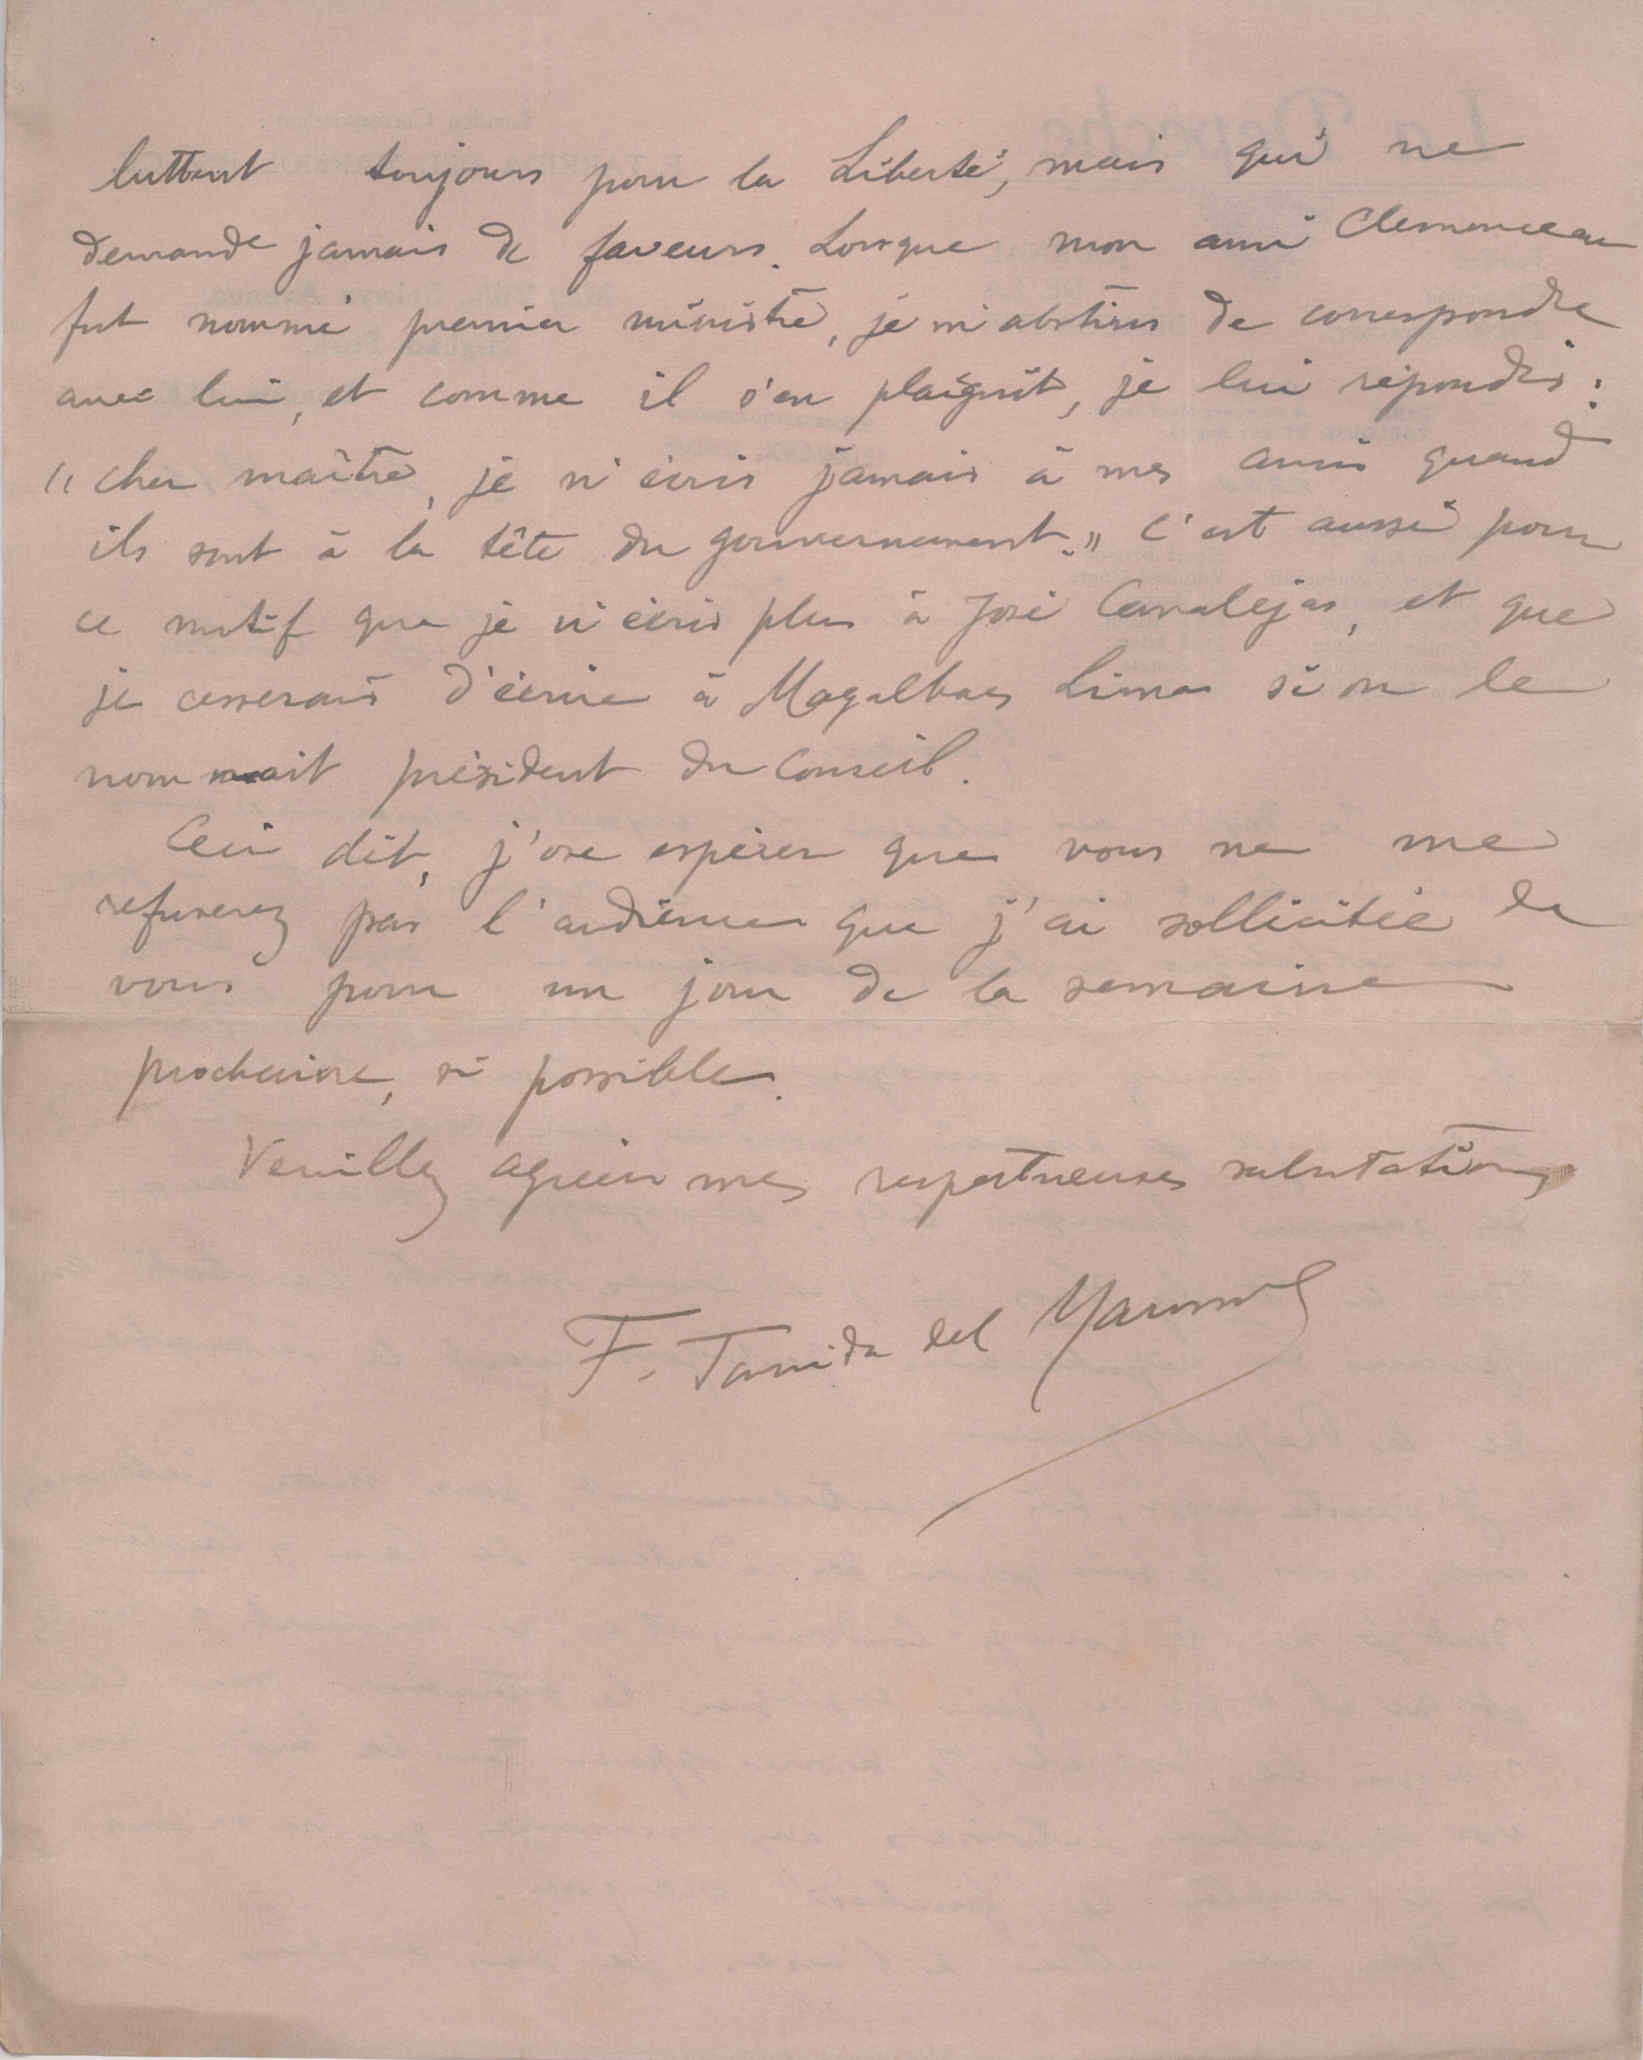 luttent toujours pour la Liberté, mais qui ne
demande jamais de faveurs. Lorsque mon ami Clemenceau
fut nommé premier ministre, je m'abstins de correspondre
avec lui, et comme il s'en plaignît, je lui répondis :
"cher maître, je n'écris jamais à mes amis quand
ils sont à la tête du gouvernement." C'est aussi pour
ce motif que je n'écris plus à José Canalejas, et que
je cesserais d'écrire à Magalhaes Lima si on le
nommait président du Conseil.
Ceci dit, j'ose espérer que vous ne me
refuserez pas l'audience que j'ai sollicitée de
vous pour un jour de la semaine
prochaine, si possible.
Veuillez agréer mes respectueuses salutations
F. Tarrida del Marmol